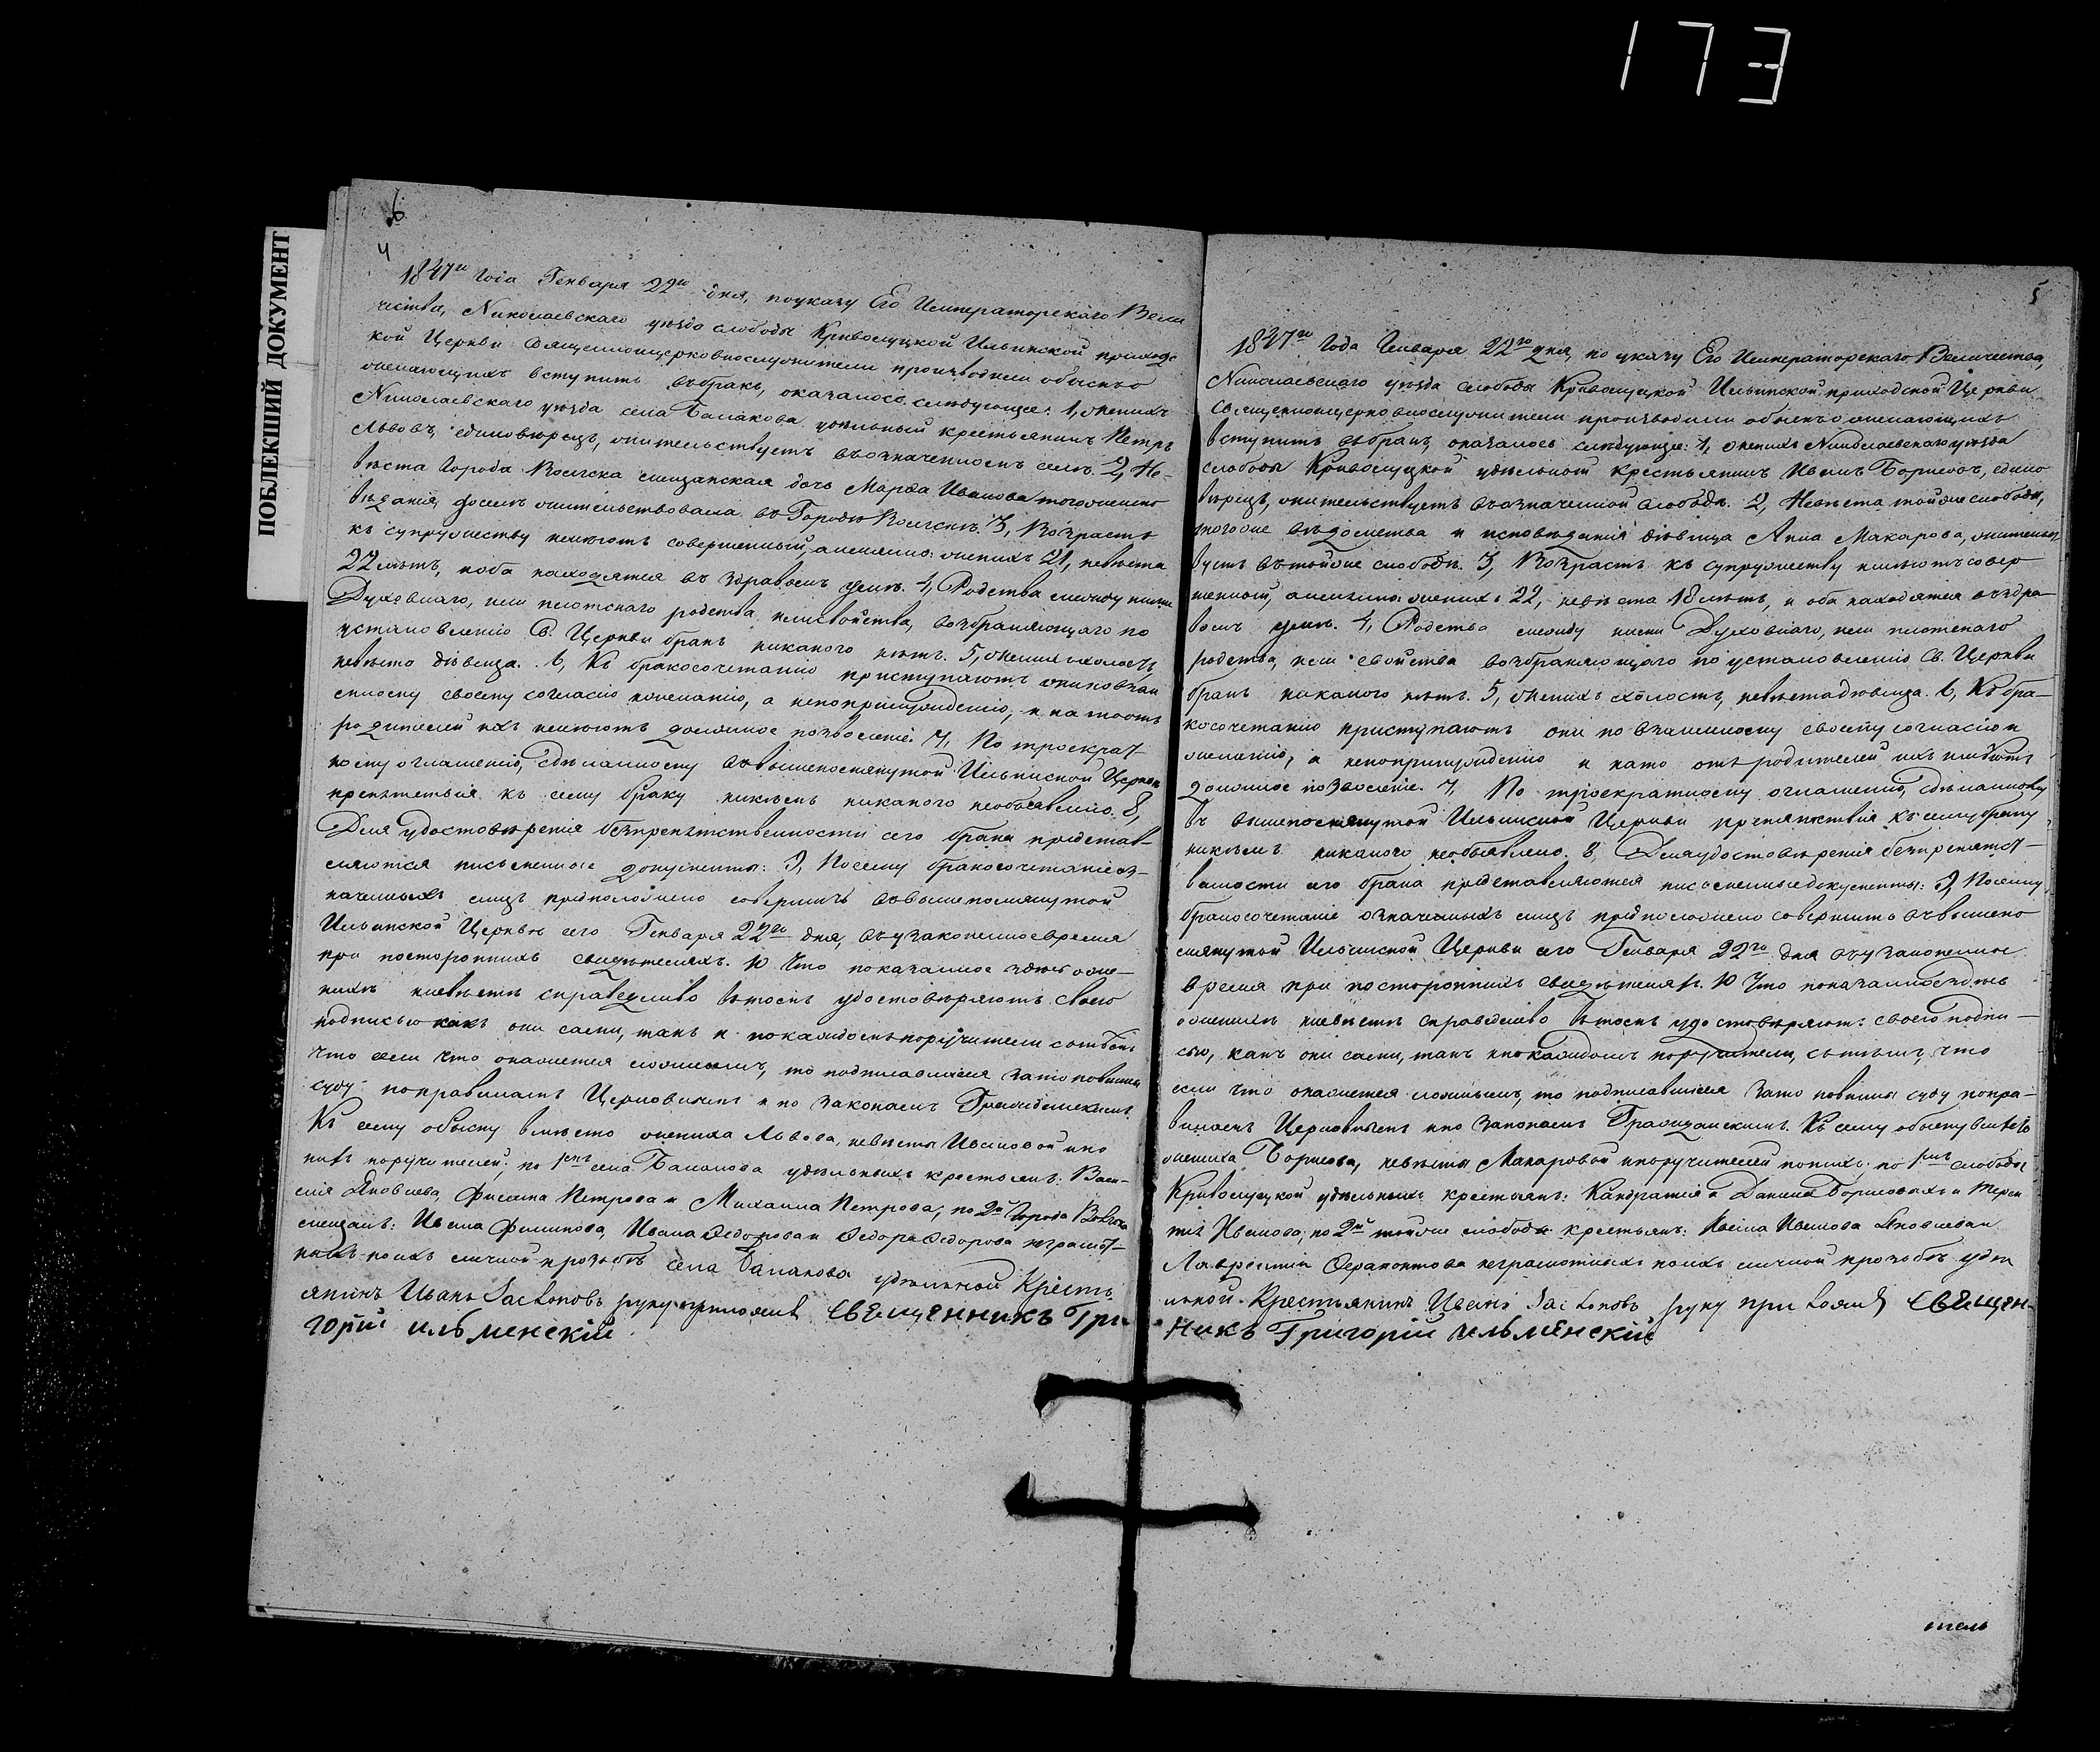 173
ПОБЛЕКШИЙ ДОКУМЕНТ
6
4
1847го Года Генваря 22го дня, по указу Его Императорскаго Вели
чества, Николаевскаго уѣзда слободы Криволуцкой Ильинской приходс
кой Церкви Священноицерковнослужители производили обыскъ о
желающихъ вступить въ бракъ, оказалось слѣдующее: 1, женихъ
Николаевскаго уѣзда села Балакова удѣльный крестьянинъ Петръ
Львовъ, единовѣрецъ, жительствуетъ въ означенномъ селѣ. 2, Не-
вѣста Города Вольска мещанская дочь Марфа Иванова тогожеиспо
вѣданія, доселѣ жительствовала въ Городѣ Вольскѣ. 3, Возрастъ
къ супружеству имѣютъ совершенный, аименно: женихъ 21, невѣста
22 лѣтъ, иоба находятся въ здравомъ умѣ. 4, Родства между ними
Духовнаго, или плотскаго родства, илисвойства, возбраняющаго по
установленію Св. Церкви бракъ никакого нѣтъ. 5, женихъ холостъ,
невѣста дѣвица. 6, Къ бракосочетанію приступаютъ они по взаи
мному своему согласію ижеланію, а непопринужденію, и на то отъ
родителей ихъ имѣютъ должное позволеніе. 7, По троекрат-
ному оглашенію, сдѣланному въ вышепомянутой Ильинской Церкви
препятствія къ сему браку никѣмъ никакого необъявлено. 8,
Для удостовѣренія безпрепятственности сего брака представ-
ляются письменные документы: 9, Посему бракосочетаніе оз-
наченныхъ лицъ предположено совершить въ вышепомянутой
Ильинской Церкви сего Генваря 22го дня, въ узаконенное время
при постороннихъ свидѣтеляхъ. 10 Что показанное здѣсь о же-
нихѣ иневѣстѣ справедливо въ томъ удостовѣряютъ своею
подписью какъ они сами, такъ и покаждомъ поручители сътѣмъ
что если что окажется ложнымъ, то подписавшіеся зато повинны
суду поправиламъ Церковнымъ и по законамъ Гражданскимъ.
Къ сему обыску вмѣсто жениха Львова, невѣсты Ивановой ипо
нихъ поручителей: по 1мъ села Балакова удѣльныхъ крестьянъ: Васи-
лія Яковлева, Филипа Петрова и Михаила Петрова, по 2й Города Вольска
мещанъ: Ивана Филипова, Ивана Федорова и Федора Федорова неграмот-
ныхъ поихъ личной прозьбѣ села Балакова удѣльной Кресть
янинъ Иванъ Заслоновъ руку приложилъ Священникъ Гри-
горій Ильменскій
5
1847го Года Генваря 22го дня, по указу Его Императорскаго Величества,
Николаевскаго уѣзда слободы Криволуцкой Ильинской приходской Церкви
Священноицерковнослужители производили обыскъ о желающихъ
вступить въ бракъ, оказалось слѣдующее: 1, женихъ Николаевскаго уѣзда
слободы Криволуцкой удѣльной крестьянинъ Иванъ Борисовъ, едино
вѣрецъ, жительствуетъ въ означенной слободѣ. 2, Невѣста тойже слободы,
тогоже вѣдомства и исповѣданія дѣвица Анна Макарова, жительст
вуетъ вътойже слободѣ. 3, Возрастъ къ супружеству имѣютъ совер
шенной, аименно: женихъ 22, невѣста 18 лѣтъ, и оба находятся въ здра-
вомъ умѣ. 4, Родства между ними Духовнаго, или плотскаго
родства, или свойства возбраняющаго по установленію Св. Церкви
бракъ никакого нѣтъ. 5, женихъ холостъ, невѣста дѣвица. 6, Къ бра-
косочетанію приступаютъ они по взаимному своему согласію и
желанію, а непопринужденію и нато отъ родителей ихъ имѣютъ
должное позволеніе. 7, По троекратному оглашенію, сдѣланному
въ вышепомянутой Ильинской Церкви препятствія къ сему браку
никѣмъ никакого необъявлено. 8, Для удостовѣренія безпрепятст-
венности сего брака представляются письменные документы: 9, Посему
бракосочетаніе означенныхъ лицъ предположено совершить въ вышепо
мянутой Ильинской Церкви сего Генваря 22го дня въ узаконенное
время при постороннихъ свидѣтеляхъ. 10 Что показанное здѣсь
о женихѣ иневѣстѣ справедливо въ томъ удостовѣряютъ своею подпи-
сью, какъ они сами, такъ ипокаждомъ поручители, сътѣмъ, что
если что окажется ложнымъ, то подписавшіеся зато повинны суду попра-
виламъ Церковнымъ ипо законамъ Гражданскимъ. Къ сему обыску вмѣсто
жениха Борисова, невѣсты Макаровой ипоручителей понихъ: по 1мъ слободы
Криволуцкой удѣльныхъ крестьянъ: Кандратія и Данила Борисовыхъ и Терен
тія Иванова; по 2й тойже слободы крестьянъ: Ивана Иванова Яковлева и
Лаврентія Ферапонтова неграмотныхъ поихъ личной прозьбѣ удѣ
льной Крестьянинъ Иванъ Заслоновъ руку приложилъ Священ-
никъ Григорій Ильменскій